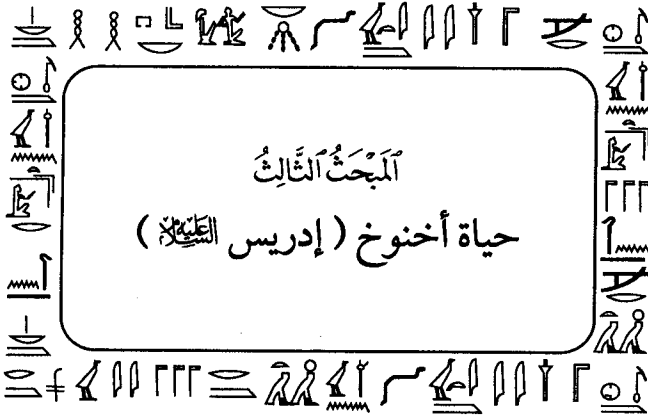 ٱلْمَبْحَثُ ٱلثَّالِثُ
حياة أخنوخ ( إدريس عَلَيْهِ السَّلَامُ )